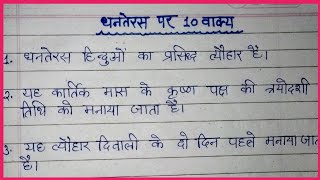 धनतेरस पर 10 वाक्य
1. धनतेरस हिन्दुओं का प्रसिद्ध त्यौहार है।
2. यह कार्तिक मास के कृष्ण पक्ष की त्रयोदशी
तिथि को मनाया जाता है।
3. यह त्यौहार दिवाली के दो दिन पहले मनाया जाता
है।